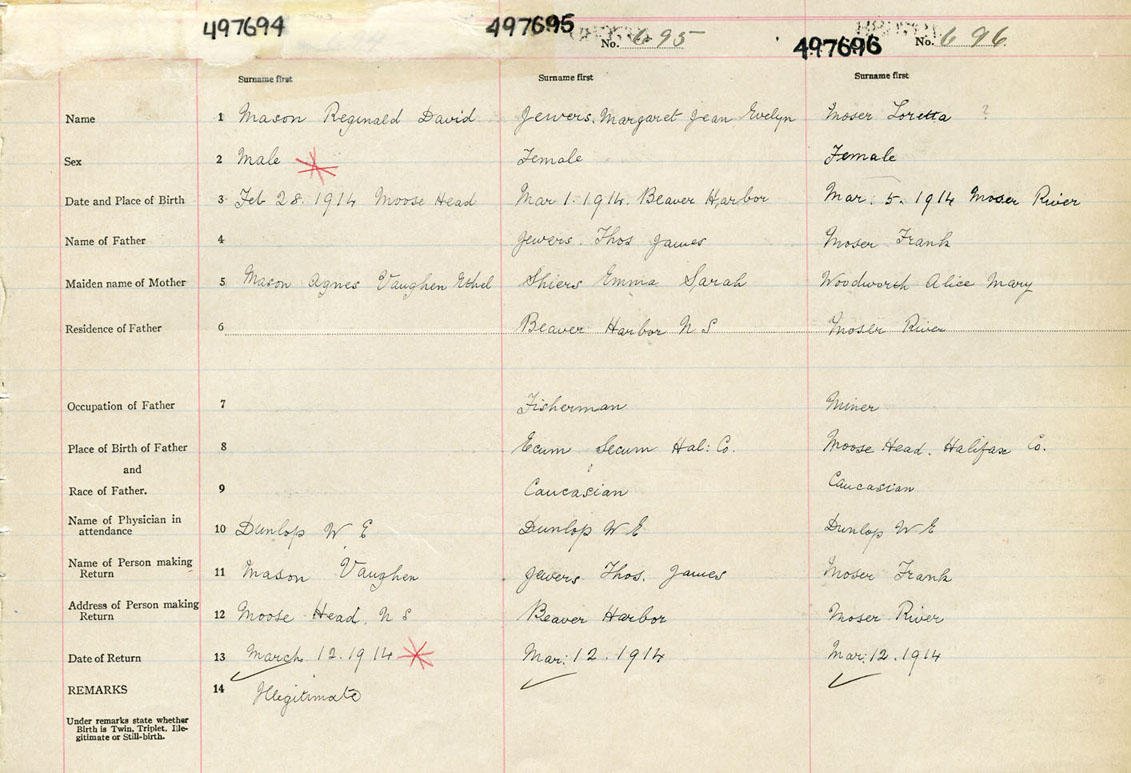 497694 497695 No. 695 497696 No. 696
Surname first Surname first Surname first
Name 1 Mason Reginald David Jewers, Margaret Jean Evelyn Moser Loretta ?
Sex 2 Male Female Female
Date and Place of Birth 3 Feb 28. 1914 Moose Head Mar 1. 1914. Beaver Harbor Mar. 5. 1914 Moser River
Name of Father 4 Jewers. Thos James Moser Frank
Maiden name of Mother 5 Mason Agnes Vaughen Ethel Shiers Emma Sarah Woodworth Alice Mary
Residence of Father 6 Beaver Harbor N S Moser River
Occupation of Father 7 Fisherman Miner
Place of Birth of Father 8 Ecum Secum Hal: Co. Moose Head. Halifax Co.
and
Race of Father. 9 Caucasian Caucasian
Name of Physician in
attendance 10 Dunlop W E Dunlop W E Dunlop W E
Name of Person making
Return 11 Mason Vaughen Jewers Thos. James Moser Frank
Address of Person making
Return 12 Moose Head. N S Beaver Harbor Moser River
Date of Return 13 March. 12. 1914 Mar: 12. 1914 Mar: 12. 1914
REMARKS 14 Illegitimate
Under remarks state whether
Birth is Twin, Triplet, Ille-
gitimate or Still-birth.